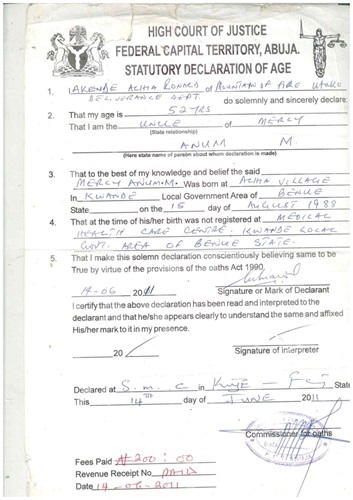 HIGH COURT OF JUSTICE
FEDERAL CAPITAL TERRITORY, ABUJA.
STATUTORY DECLARATION OF AGE
1. IAKENDE ACHA RONALD of MOUNTAIN OF FIRE UTAKO
DELIVERANCE DEPT. do solemnly and sincerely declare:
2. That my age is 52 YRS
That I am the UNCLE of MERCY
(State relationship)
ANUM M.
(Here state name of person about whom declaration is made)
3. That to the best of my knowledge and belief the said
MERCY ANUM.M. Was born at ACHA VILLAGE
In KWANDE Local Government Area of BENUE
State on the 15 day of AUGUST 1988
4. That at the time of his/her birth was not registered at MEDICAL
HEALTH CARE CENTRE. KWANDE LOCAL
GOVT. AREA OF BENUE STATE.
5. That I make this solemn declaration conscientiously believing same to be
True by virtue of the provisions of the oaths Act 1990.
14-06 2011
Signature or Mark of Declarant
I certify that the above declaration has been read and interpreted to the
declarant and that he/she appears clearly to understand the same and affixed
His/her mark to it in my presence.
20
Signature of interpreter
Declared at S.M.C in State
This 14TH day of JUNE 2011
Commissioner for oaths
Fees Paid ₦200:00
Revenue Receipt No PAID
Date 14-06-2011